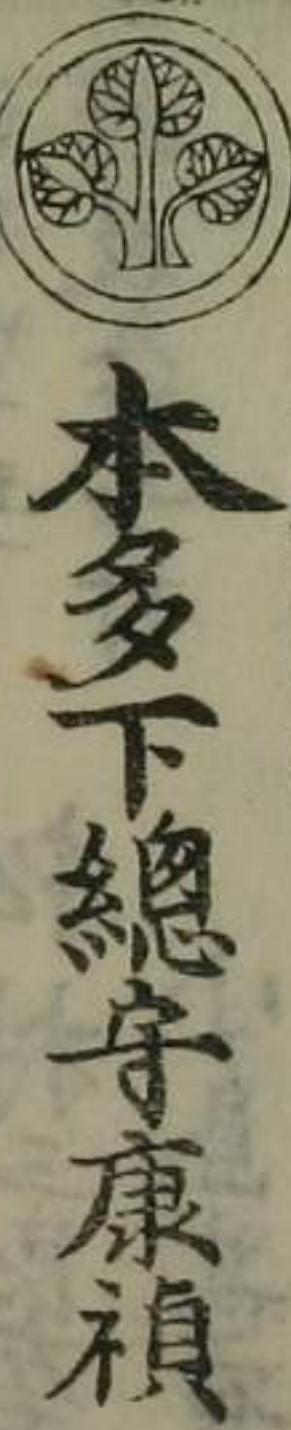 本多下總守康禎